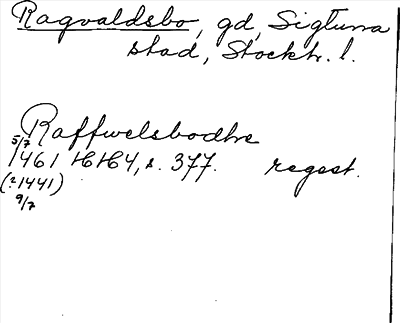 Ragvaldsbo, gd, Sigtuna
stad, Stockh. l.
Raffwelsbodhe
5/7
1461 HH4, s. 377. regest.
(?1441)
9/7